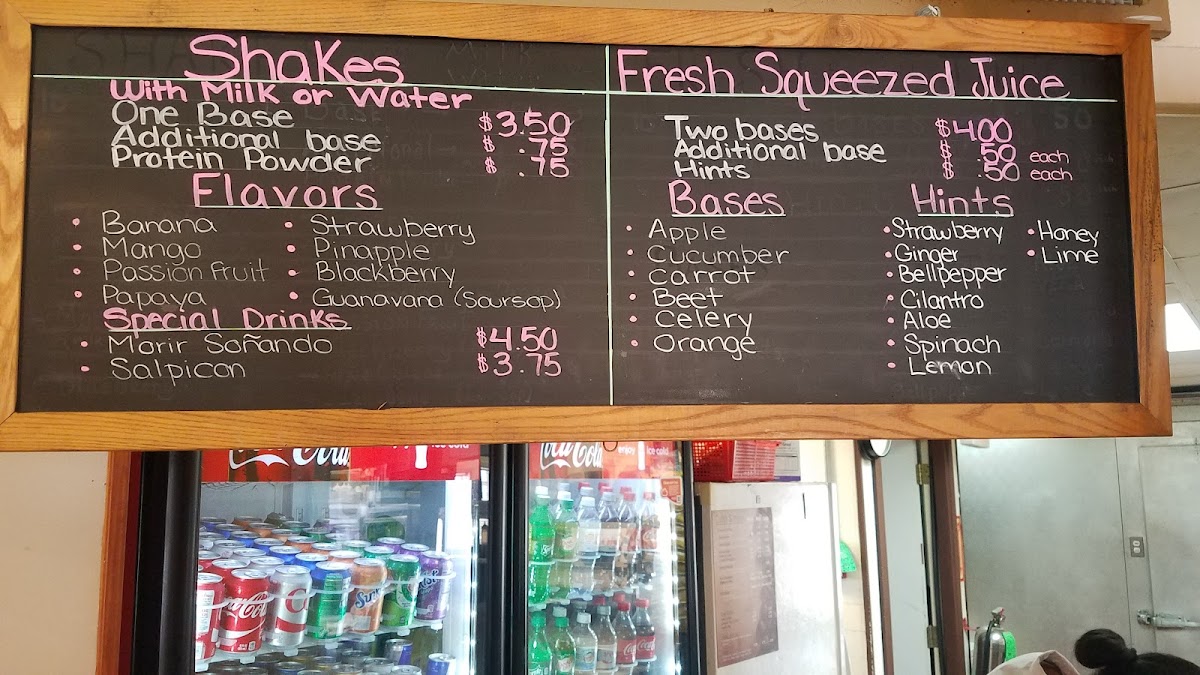 Shakes
With Milk or Water
One Base $3.50
Additional base $ .75
Protein Powder $ .75
Flavors
• Banana
• Mango
• Passion fruit
• Papaya
• Strawberry
• Pinapple
• Blackberry
• Guanavana (Soursop)
Special Drinks
• Morir Soñando $4.50
• Salpicon $3.75
Fresh Squeezed Juice
Two bases $4.00
Additional base $ .50 each
Hints $ .50 each
Bases
• Apple
• Cucumber
• carrot
• Beet
• Celery
• Orange
Hints
• Strawberry
• Ginger
• Bellpepper
• Cilantro
• Aloe
• Spinach
• Lemon
• Honey
• Lime
Coca-Cola
enjoy ice cold